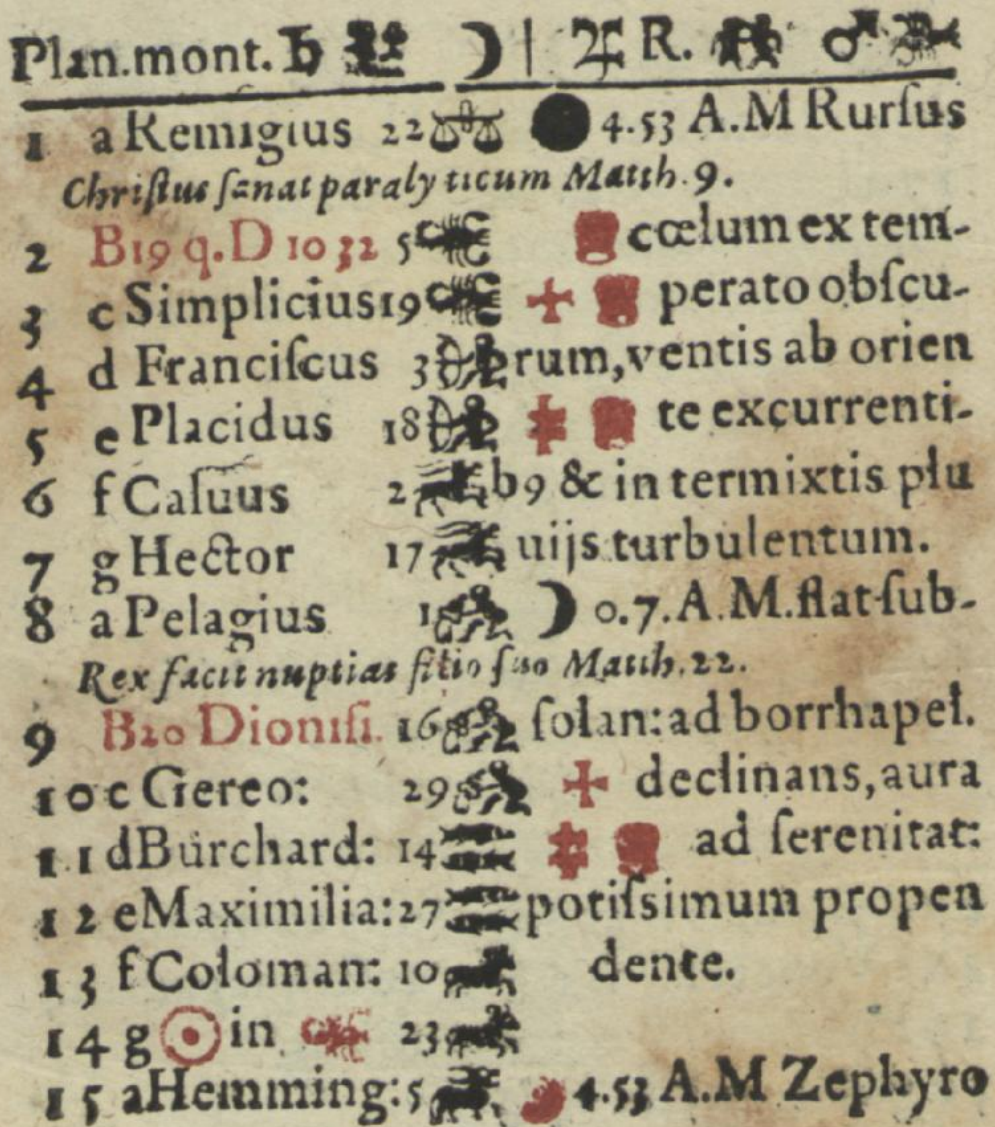 Plan.mont. ♄ ☽ | ♃ R. ♂
1 a Remigius 22 ● 4.53 A.M Rurſus
Chriſtus ſanat paralyticum Matth. 9.
2 B19 q.D 10 32 5 cœlum ex tem-
3 c Simplicius 19 perato obſcu-
4 d Franciſcus 3 rum, ventis ab orien
5 e Placidus 18 te excurrenti-
6 f Caſuus 2 b9 & in termixtis plu
7 g Hector 17 uijs turbulentum.
8 a Pelagius 1 ☽ 0.7. A.M. flat ſub-
Rex facit nuptias filio ſuo Matth. 22.
9 B20 Dioniſi. 16 ſolan: ad borrhapel.
10 c Gereo: 29 declinans, aura
11 d Burchard: 14 ad ſerenitat:
12 e Maximilia: 27 potiſsimum propen
13 f Coloman: 10 dente.
14 g ☉ in 23
15 a Hemming: 5 4.53 A.M Zephyro